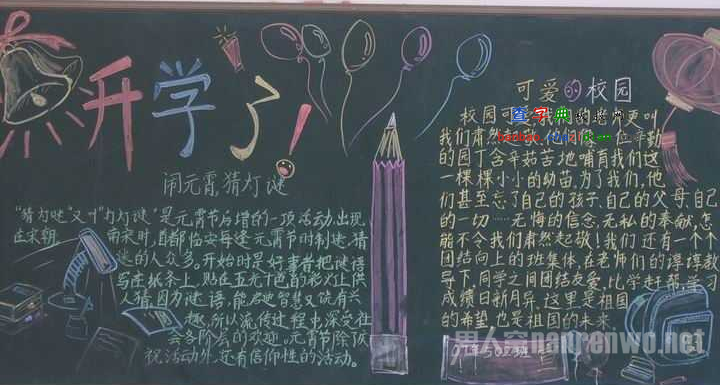 开学了!
闹元宵,猜灯谜
"猜灯谜"又叫"打灯谜"是元宵节后增的一项活动,出现
在宋朝。南宋时,首都临安每逢元宵节时制谜,猜
谜的人众多。开始时是好事者把谜语
写在纸条上,贴在五光十色的彩灯上供
人猜。因为谜语,能启迪智慧又饶有兴
趣,所以流传过程中深受社
会各阶层的欢迎。元宵节除庆
祝活动外,还有信仰性的活动。
可爱的校园
校园可 我 更叫
我们肃然 他们 位辛勤
的园丁含辛茹苦地哺育我们这
一棵棵小小的幼苗,为了我们,他
们甚至忘了自己的孩子,自己的父母,自己
的一切……无悔的信念,无私的奉献,怎
能不令我们肃然起敬!我们还有一个个
团结向上的班集体,在老师们的谆谆教
导下,同学之间团结友爱,比学赶帮,学习
成绩日新月异,这里是祖国
的希望,也是祖国的未来
查字典
502班
男人窝nanrenwo.net